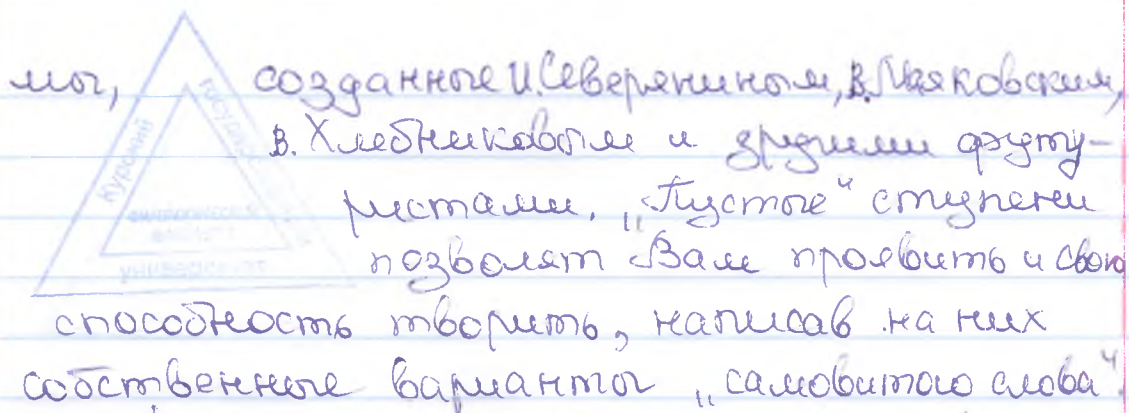 мы, созданные И. Северяниным, В. Маяковским,
В. Хлебниковым и другими футу-
ристами. „Пустые“ ступени
позволят Вам проявить и свою
способность творить, написав на них
собственные варианты „самовитого слова“.
Курский
университет